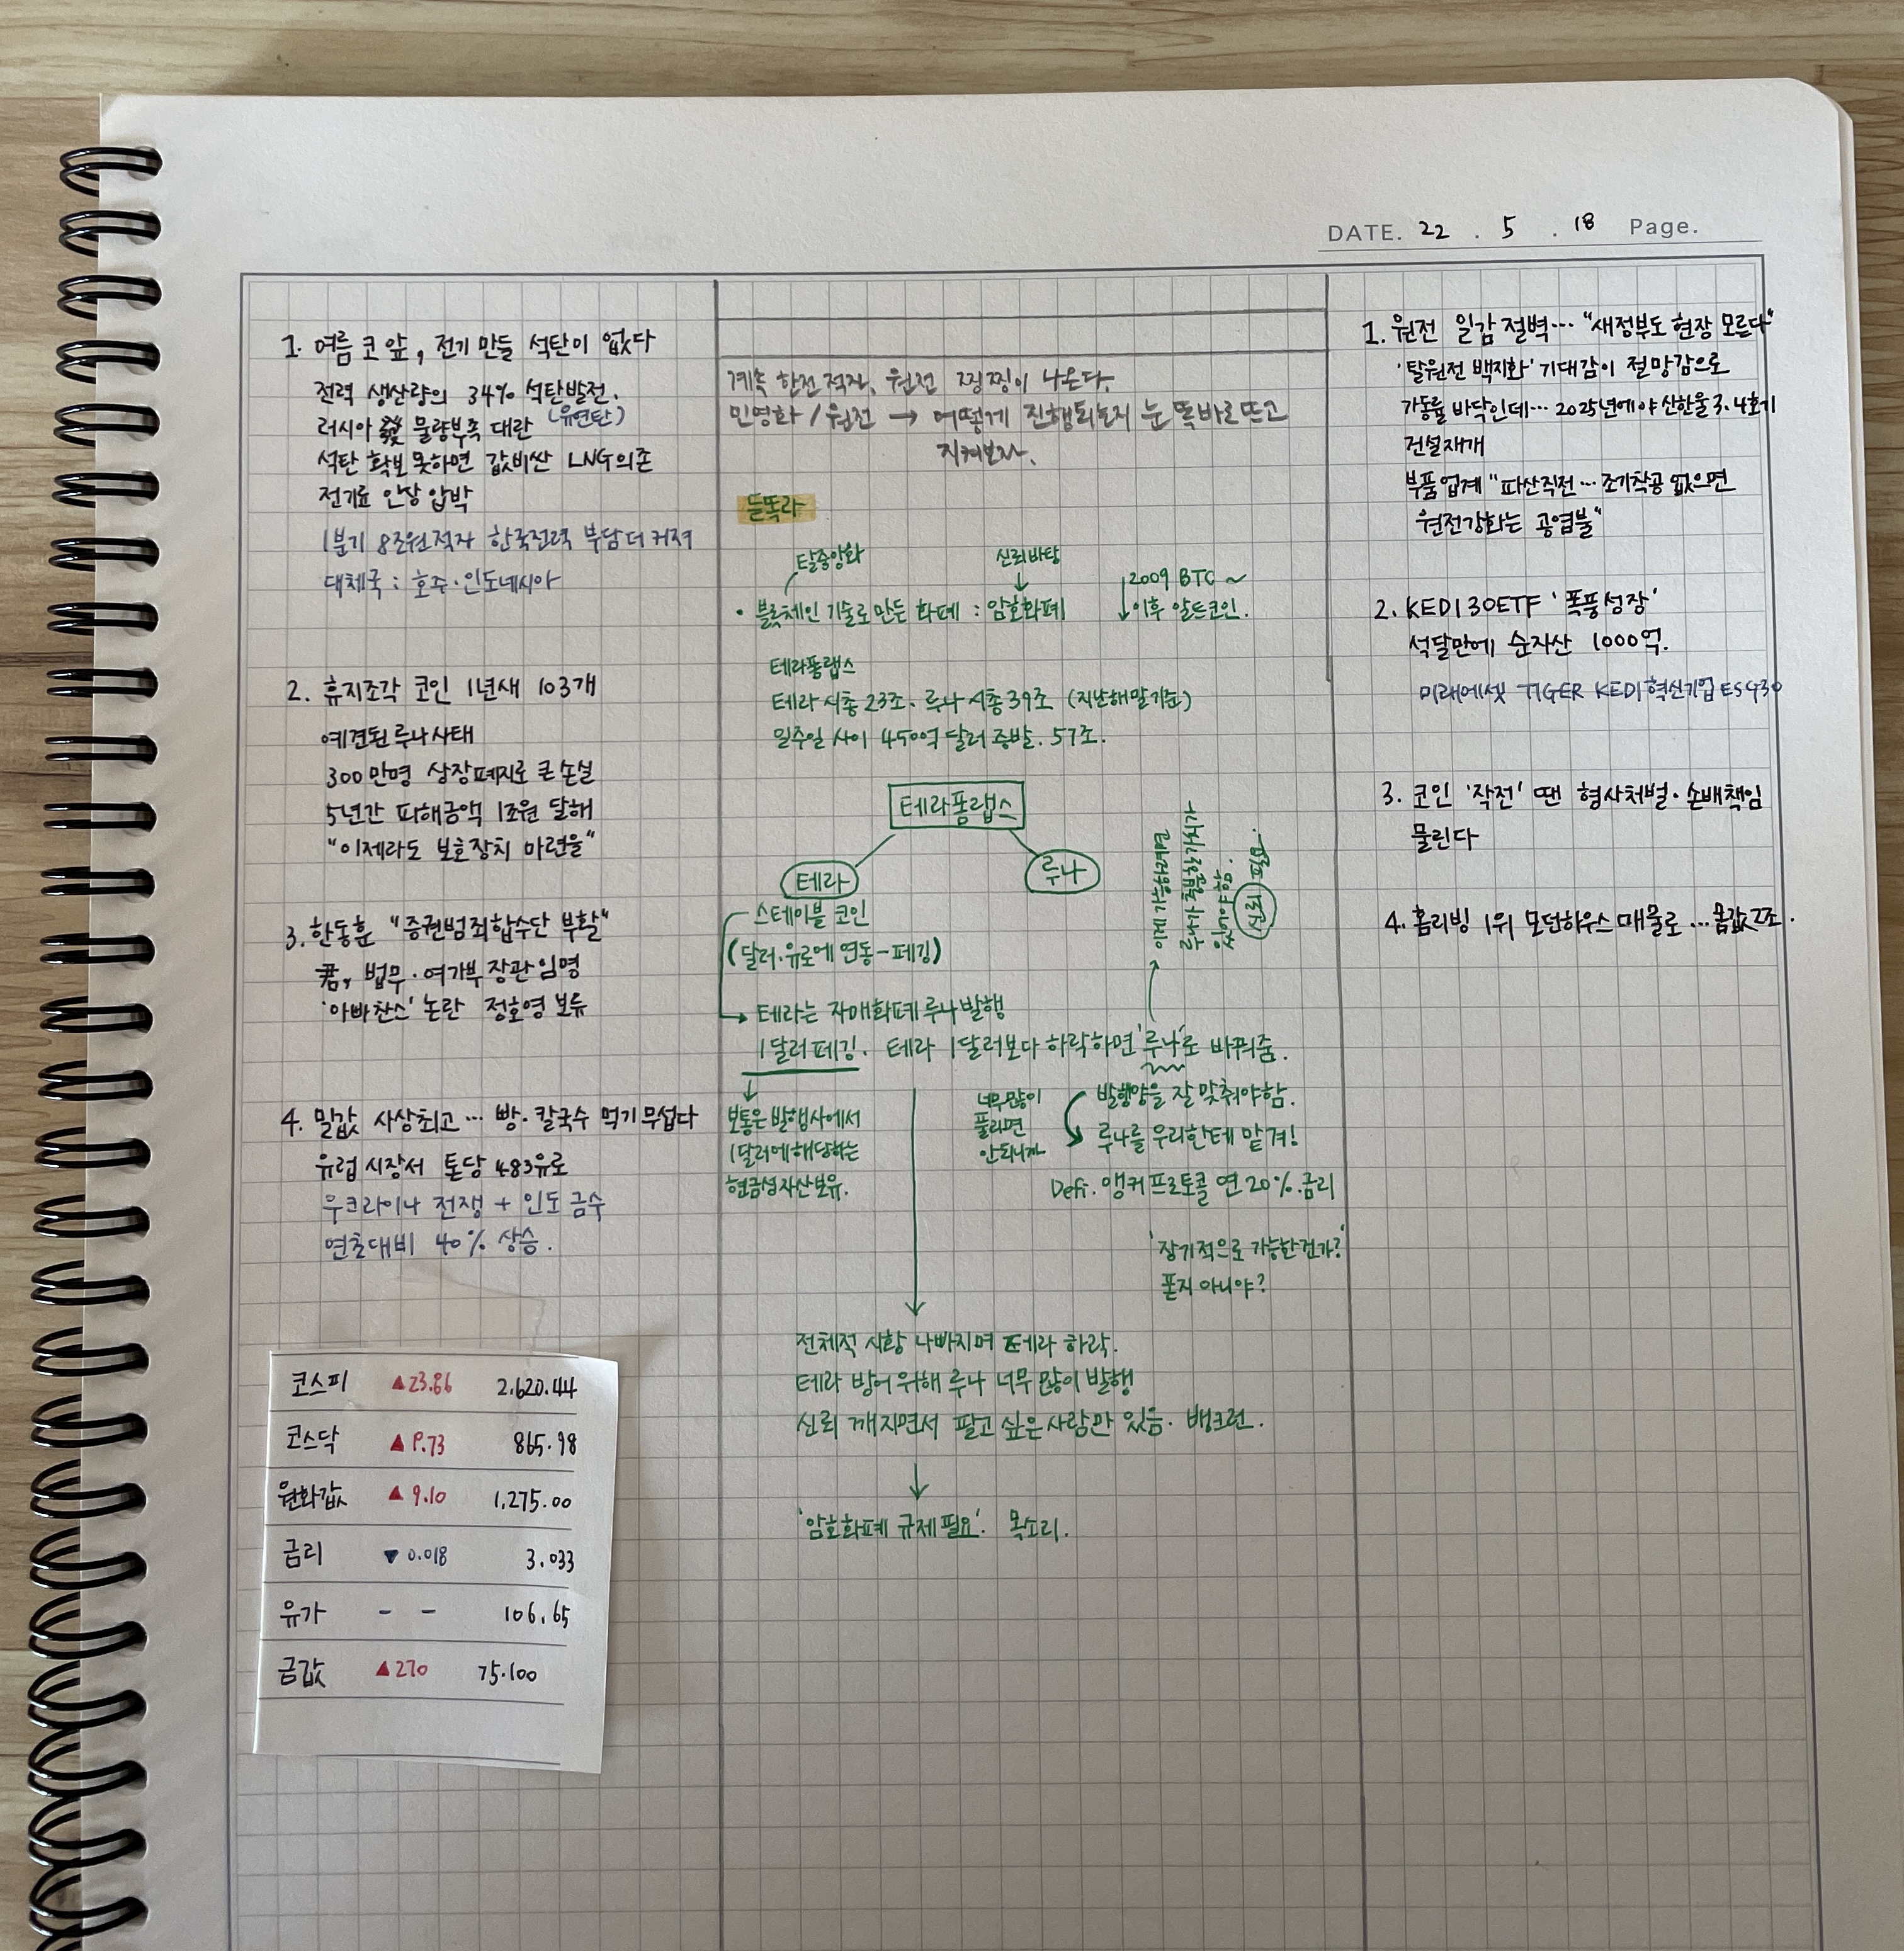 DATE. 22 . 5 . 18 Page.
1. 여름 코 앞, 전기 만들 석탄이 없다
전력 생산량의 34% 석탄발전.
(유연탄)
러시아 發 물량부족 대란
석탄 확보 못하면 값비싼 LNG의존
전기료 인상 압박
1분기 8조원적자 한국전력 부담 더 커져
대체국 : 호주·인도네시아
2. 휴지조각 코인 1년새 103개
예견된 루나사태
300만명 상장폐지로 큰 손실
5년간 피해금액 1조원 달해
"이제라도 보호장치 마련을"
3. 한동훈 "증권범죄합수단 부활"
법무·여가부 장관 임명
'아빠찬스' 논란 정호영 보류
4. 밀값 사상최고… 빵·칼국수 먹기 무섭다
유럽 시장서 톤당 483유로
우크라이나 전쟁 + 인도 금수
연초대비 40% 상승.
코스피 ▲23.86 2.620.44
코스닥 ▲9.73 865.98
원화값 ▲9.10 1,275.00
금리 ▼0.018 3.033
유가 - - 106.65
금값 ▲270 75.100
계속 한전 적자, 원전 찡찡이 나온다.
민영화 / 원전 → 어떻게 진행되는지 눈 똑바로 뜨고
지켜보자.
듣똑라
탈중앙화
신뢰바탕
2009 BTC ~
• 블록체인 기술로 만든 화폐 : 암호화폐
이후 알트코인.
테라폼랩스
테라 시총 23조. 루나 시총 39조 (지난해말기준)
일주일 사이 450억 달러 증발. 57조.
테라폼랩스
테라
루나
스테이블 코인
(달러·유로에 연동-페깅)
→ 테라는 자매화폐 루나 발행
1달러 페깅. 테라 1달러보다 하락하면 '루나'로 바꿔줌.
보통은 발행사에서
1달러에 해당하는
현금성자산보유.
너무많이
풀리면
안되니까
발행양을 잘 맞춰야함.
루나를 우리한테 맡겨!
Defi. 앵커프로토콜 연 20% 금리
'장기적으로 가능한건가?
폰지 아니야?
전체적 시황 나빠지며 테라 하락.
테라 방어 위해 루나 너무 많이 발행
신뢰 깨지면서 팔고 싶은 사람만 있음. 뱅크런.
'암호화폐 규제 필요'. 목소리.
1. 원전 일감 절벽… "새정부도 현장 모른다"
'탈원전 백지화' 기대감이 절망감으로
가동률 바닥인데… 2025년에야 신한울 3.4호기
건설재개
부품업계 "파산직전… 조기착공 없으면
원전강화는 공염불"
2. KEDI 30ETF '폭풍성장'
석달만에 순자산 1000억.
미래에셋 TIGER KEDI 혁신기업 ESG30
3. 코인 '작전' 땐 형사처벌·손배책임
물린다
4. 홈리빙 1위 모던하우스 매물로 … 몸값 2조.